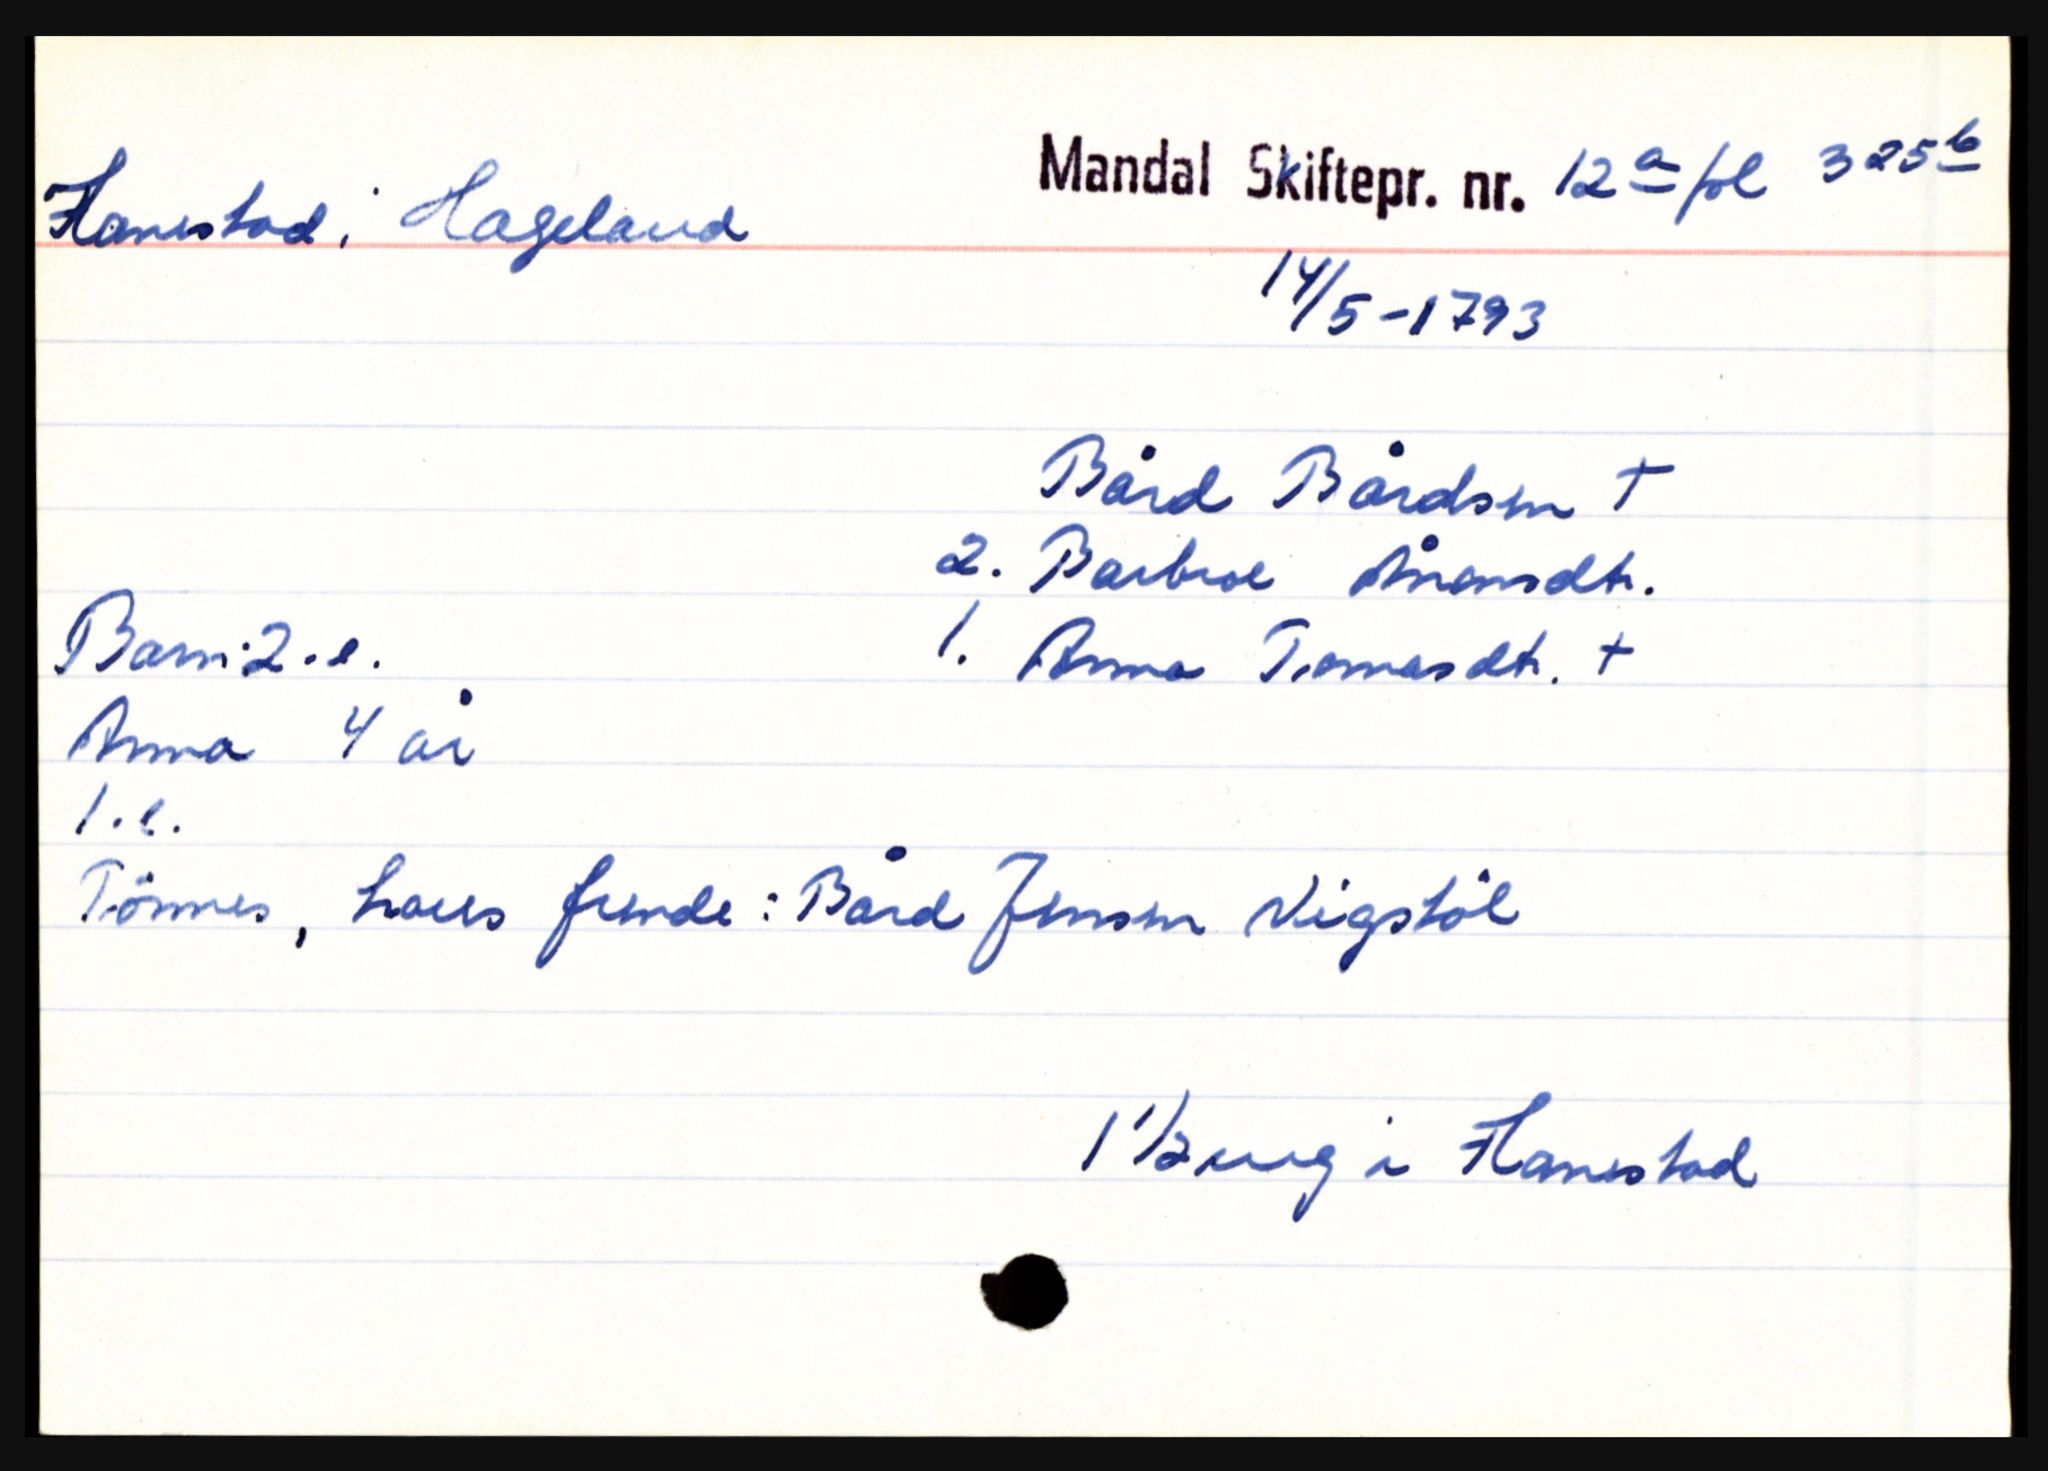 Hanestad i Hageland
Mandal Skiftepr. nr. 12 a fol 325 b
14/5-1793
Bård Bårdsen †
2. Barbroe Ånensdtr.
1. Anna Tomasdtr. †
Barn: 2. e.
Anna 4 år
1. e.
Tönnes, hans frende: Bård Jensen Vigstöl
1 1/2 eng i Hanestad